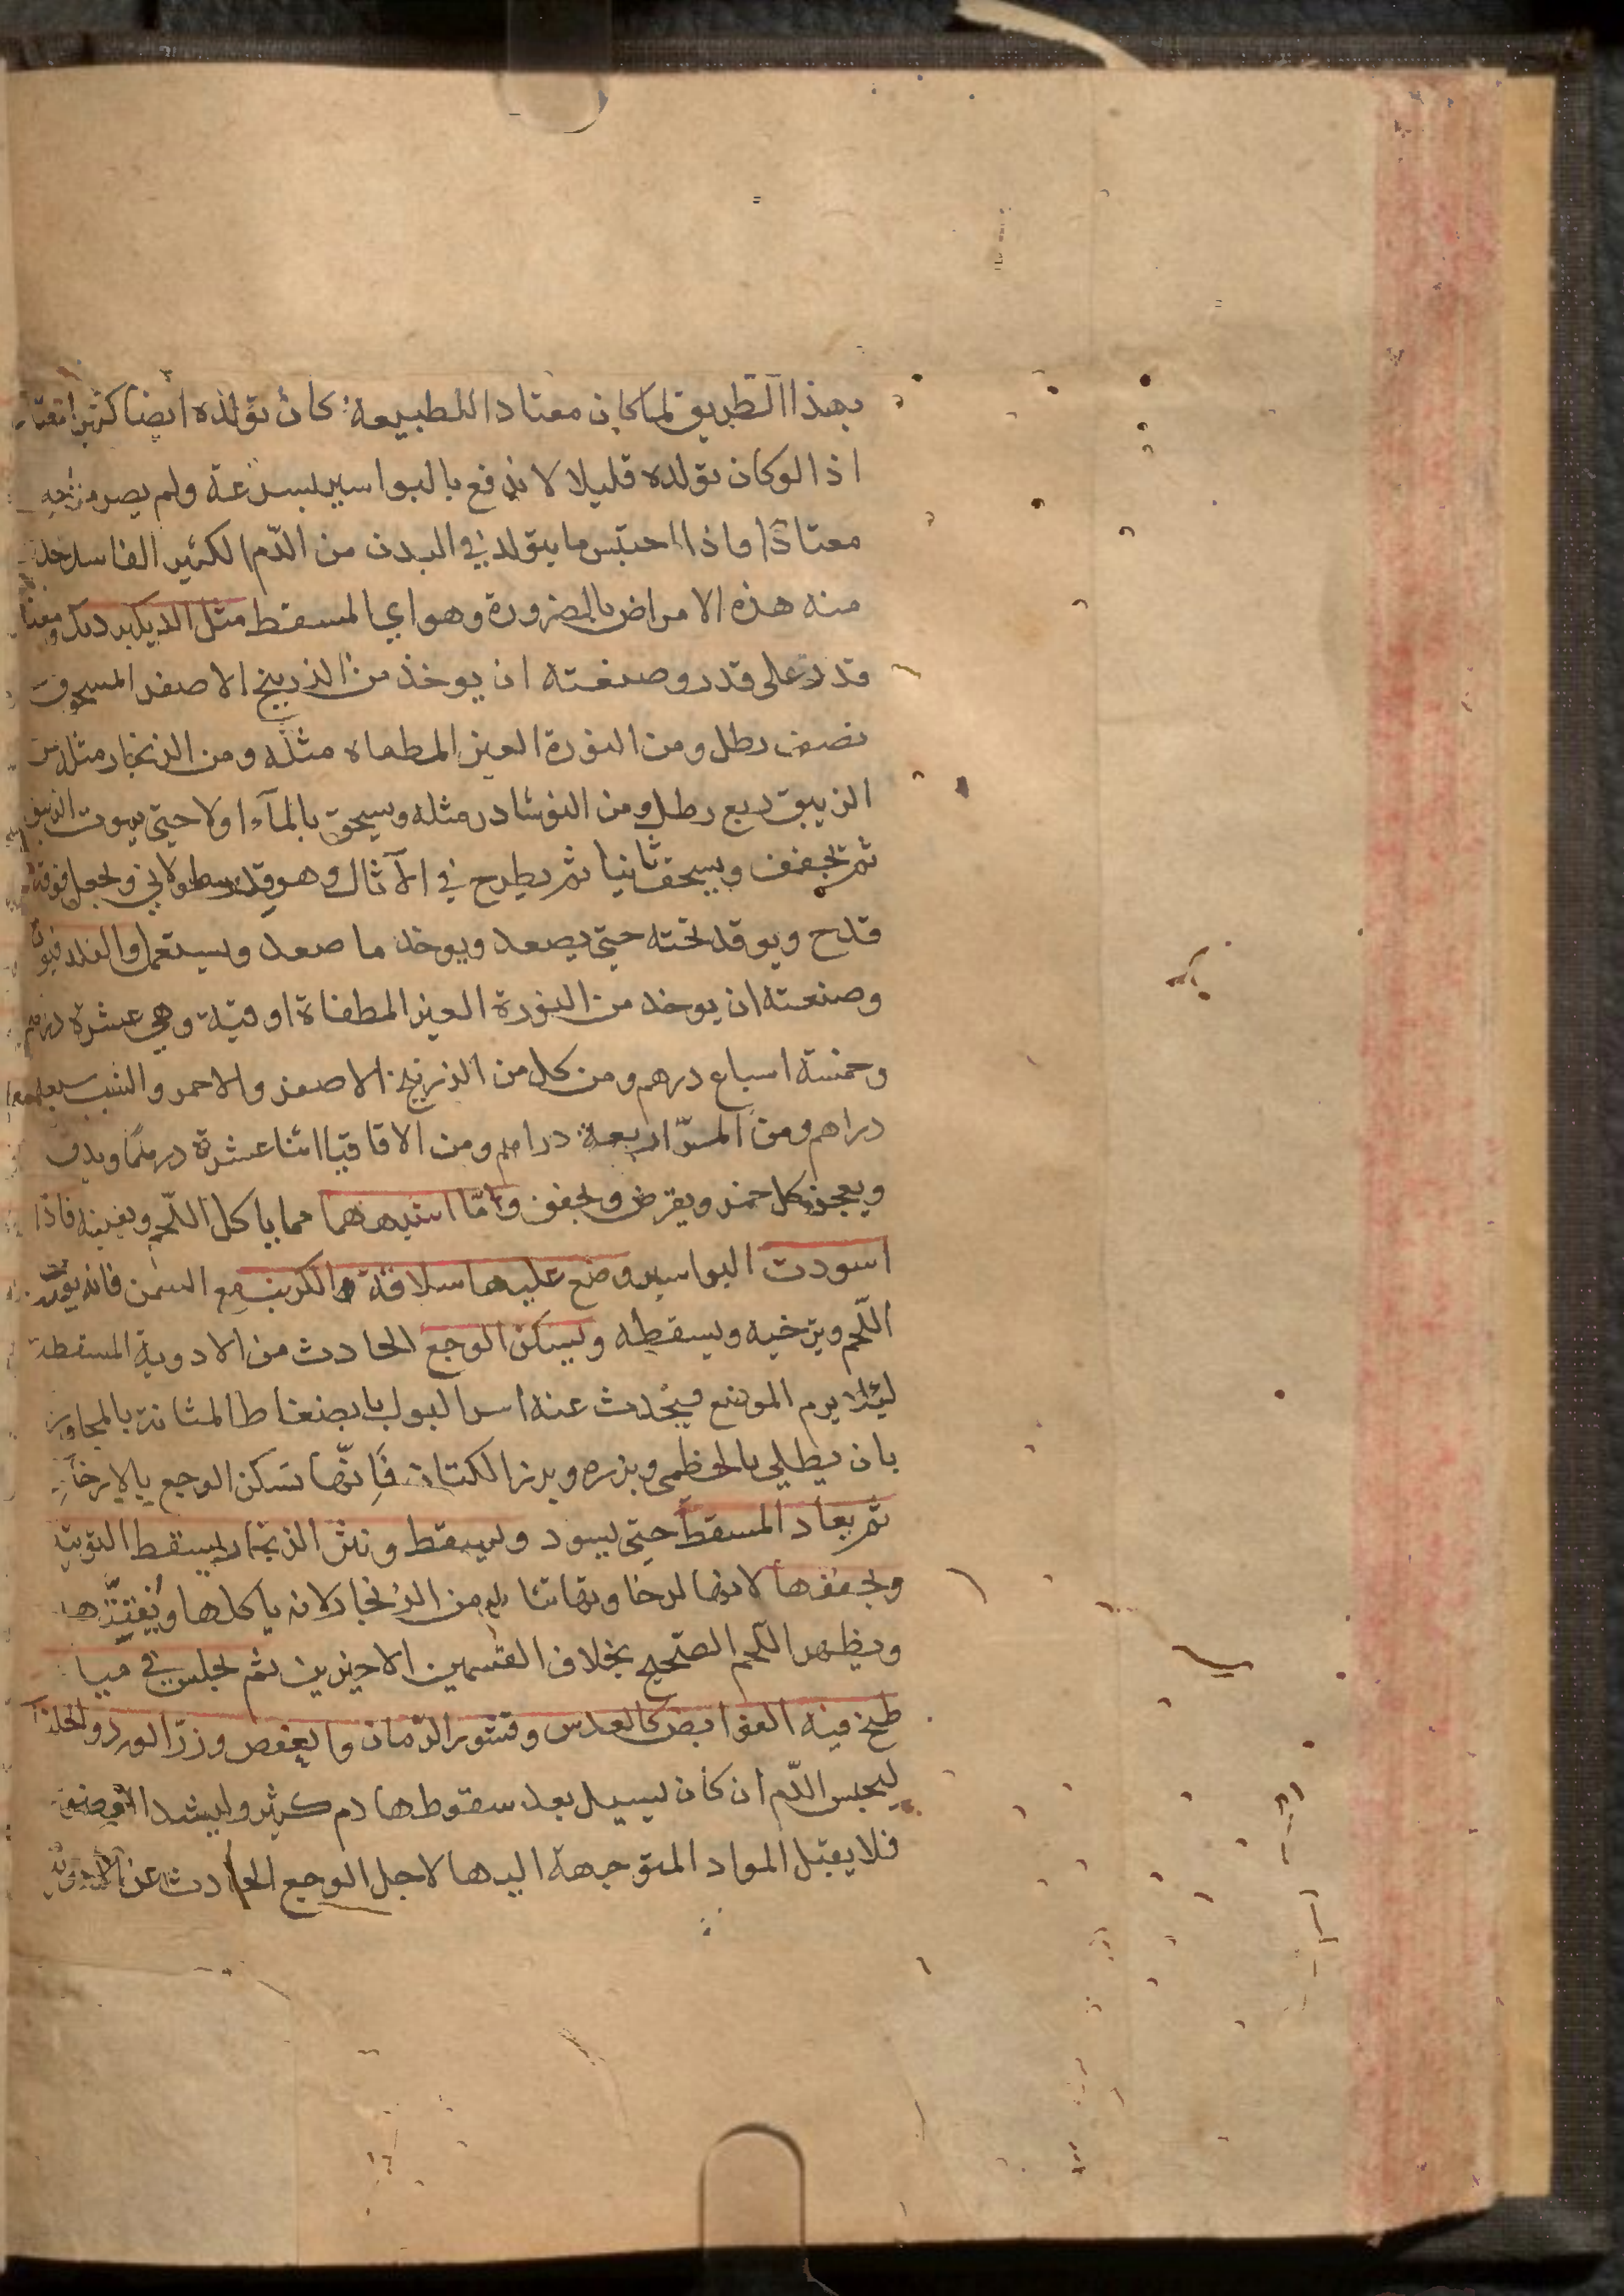 بهذا الطريق لما كان معتادا للطبيعة كان تولده ايضا كثيرا
اذ لو كان تولده قليلا لاندفع بالبواسير بسرعة ولم يصر
معتادا واذا احتبس ما يتولد في البدن من الدّم الكثير الفاسد
منه هذه الامراض بالضرورة وهو اي المسقط مثل الديك برديك
قدر على قدر وصنعته ان يوخذ من الزرنيخ الاصفر المسحوق
نصف رطل ومن النورة الغير المطفاه مثله ومن الزنجار مثله من
الزيبق ربع رطل ومن النوشادر مثله ويسحق بالمآء اولا حتى يموت الزيبق
ثم تجفف ويسحق ثانيا ثم يطرح في الآثال وهو قدر ويجعل فوقه
قدح ويوقد تحته حتى يصعد ويوخذ ما صعد ويستعمل والفلدفيون
وصنعته ان يوخذ من النورة الغير المطفاة اوقية وهي عشرة دراهم
وخمسة اسباع درهم ومن كل من الزرنيخ الاصفر والاحمر والشب
دراهم ومن المرّ اربعة دراهم ومن الاقاقيا اثنا عشرة درهمًا ويدق
ويعجن بكل خمر ويقرص ويجفف وامّا اشبههما مما ياكل اللّحم ويفنيه فاذا
اسودت البواسير وضع عليها سلاقة الكرنب مع السمن فانه
اللّحم ويرخيه ويسقطه ويسكن الوجع الحادث من الادوية المسقطة
ليئلا يرم الموضع فيحدث عنه اسر البول بانضغاط المثانة بالمجاورة
بان يطلى بالخطمى وبزره وبرز الكتان فإنّها تسكن الوجع بالارخآءِ
ثم يعاد المسقط حتى يسود ويسقط ونثر الزنجار يسقط التوتية
ويجففها لانها لرخاوتها من الزنجار لانه ياكلها ويُفَتِّتها
ويظهر اللّحم الصّحيح بخلاف القسمين الاخيرين ثم يجلس في مياه
طبخ فيه القوابض كالعدس وقشور الرّمان والعفص وزرّ الورد
ليحبس الدّم ان كان يسيل بعد سقوطها دم كثير وليشد الموضع
فلا يقبل المواد المتوجهة اليها لاجل الوجع الحادث عن الادوية